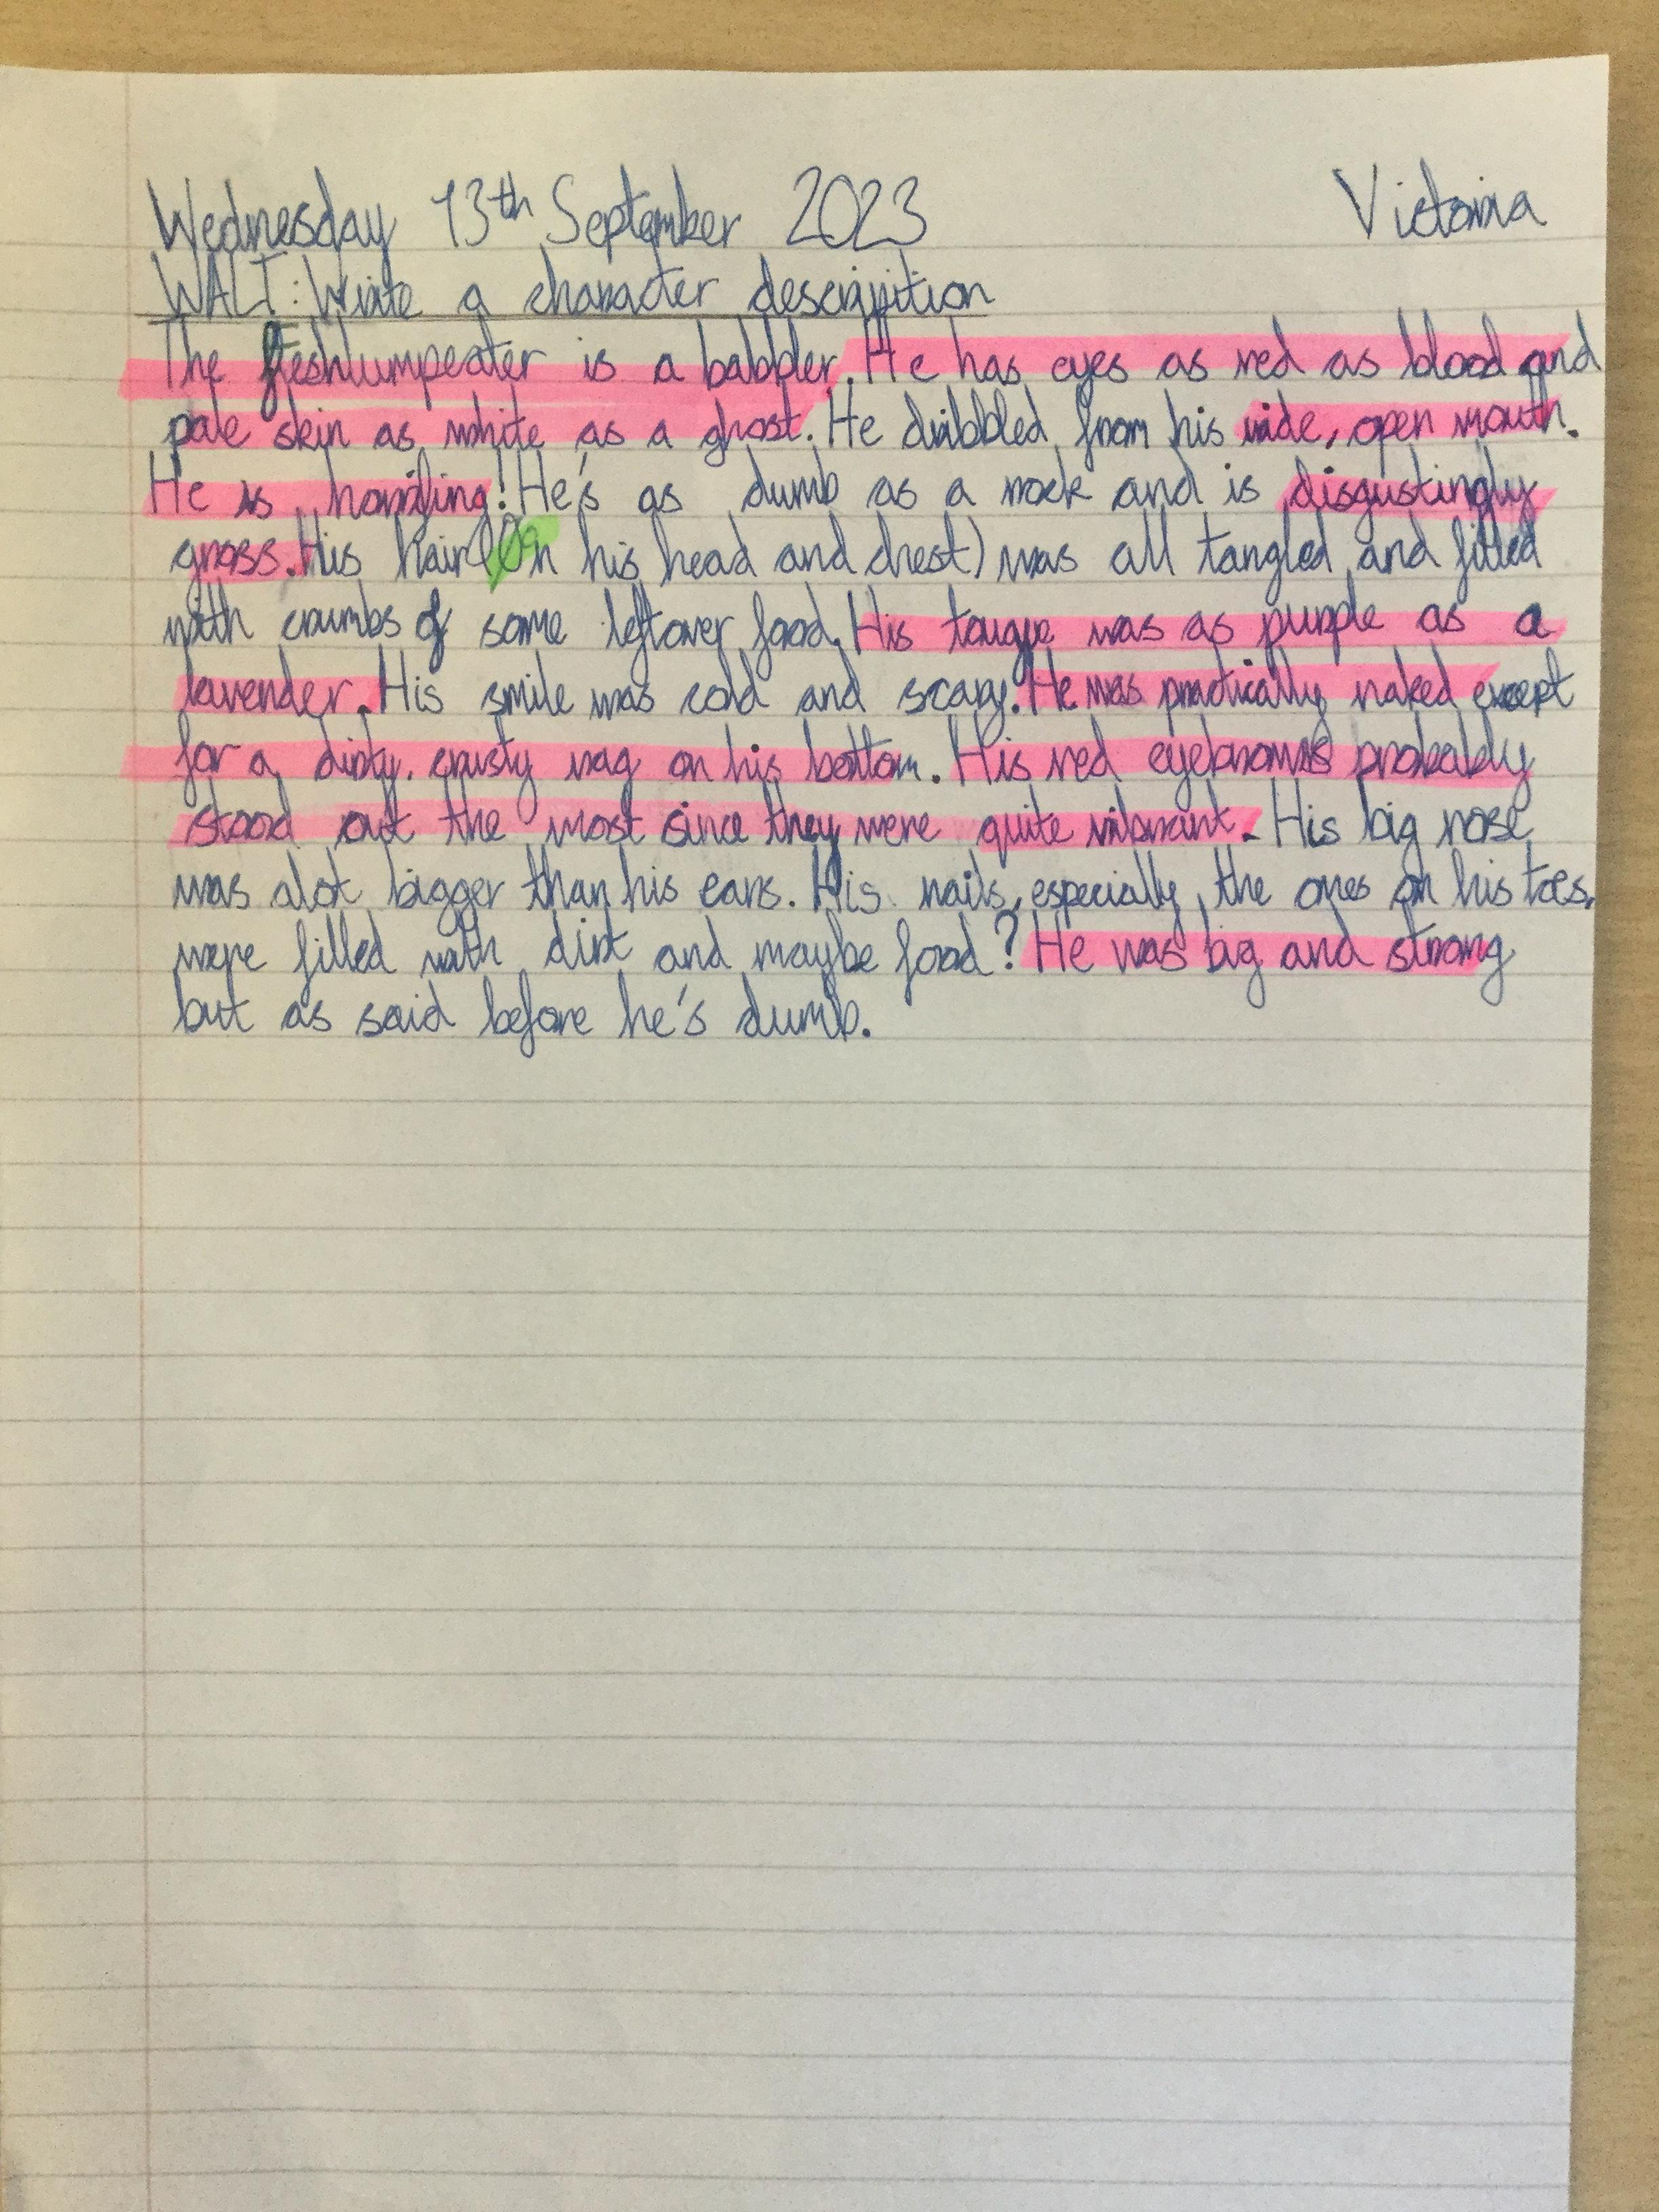 Wednesday 13th September 2023 Victoria
WALT: Write a character description
The fleshlumpeater is a babbler. He has eyes as red as blood and
pale skin as white as a ghost. He dribbled from his wide, open mouth.
He is horrifing! He's as dumb as a rock and is disgustingly
gross. His hair (On his head and chest) was all tangled and filled
with crumbs of some leftover food. His tougue was as purple as a
lavender. His smile was cold and scary. He was practically naked except
for a dirty, crusty rag on his bottom. His red eyebrows probably
stood out the most since they were quite vibrant. His big nose
was alot bigger than his ears. His nails, especially the ones on his toes,
were filled with dirt and maybe food? He was big and strong
but as said before he's dumb.